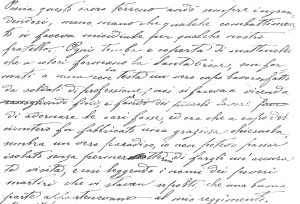 questo sacro terreno andò sempre ingran
dendosi, mano mano che qualche combattimen
to si faceva micidiale per qualche nostro
fratello. Ogni tomba è coperta di mattonelle
che a colori formano la Santa Croce, son for
mati a
da soldati di professione, noi si faceva a vicenda
fiori e
di adornare le cari fosse, ed ora che a capo del
cimitero fu fabbricata una graziosa chiesuola,
sembra un vero paradiso, io non potevo passar
isolato senza di fargli un accura
ta visita, e così leggendo i nomi dei poveri
martiri che vi stavan sepolti, che una buona
parte appartenevano al mio reggimento.